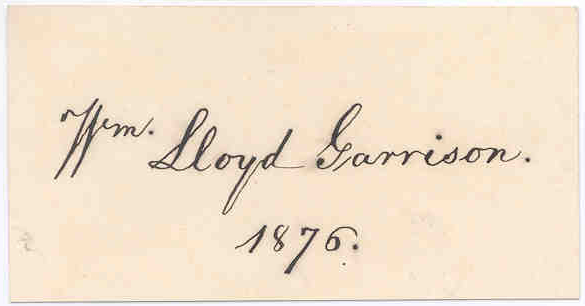 Wm. Lloyd Garrison.
1876.